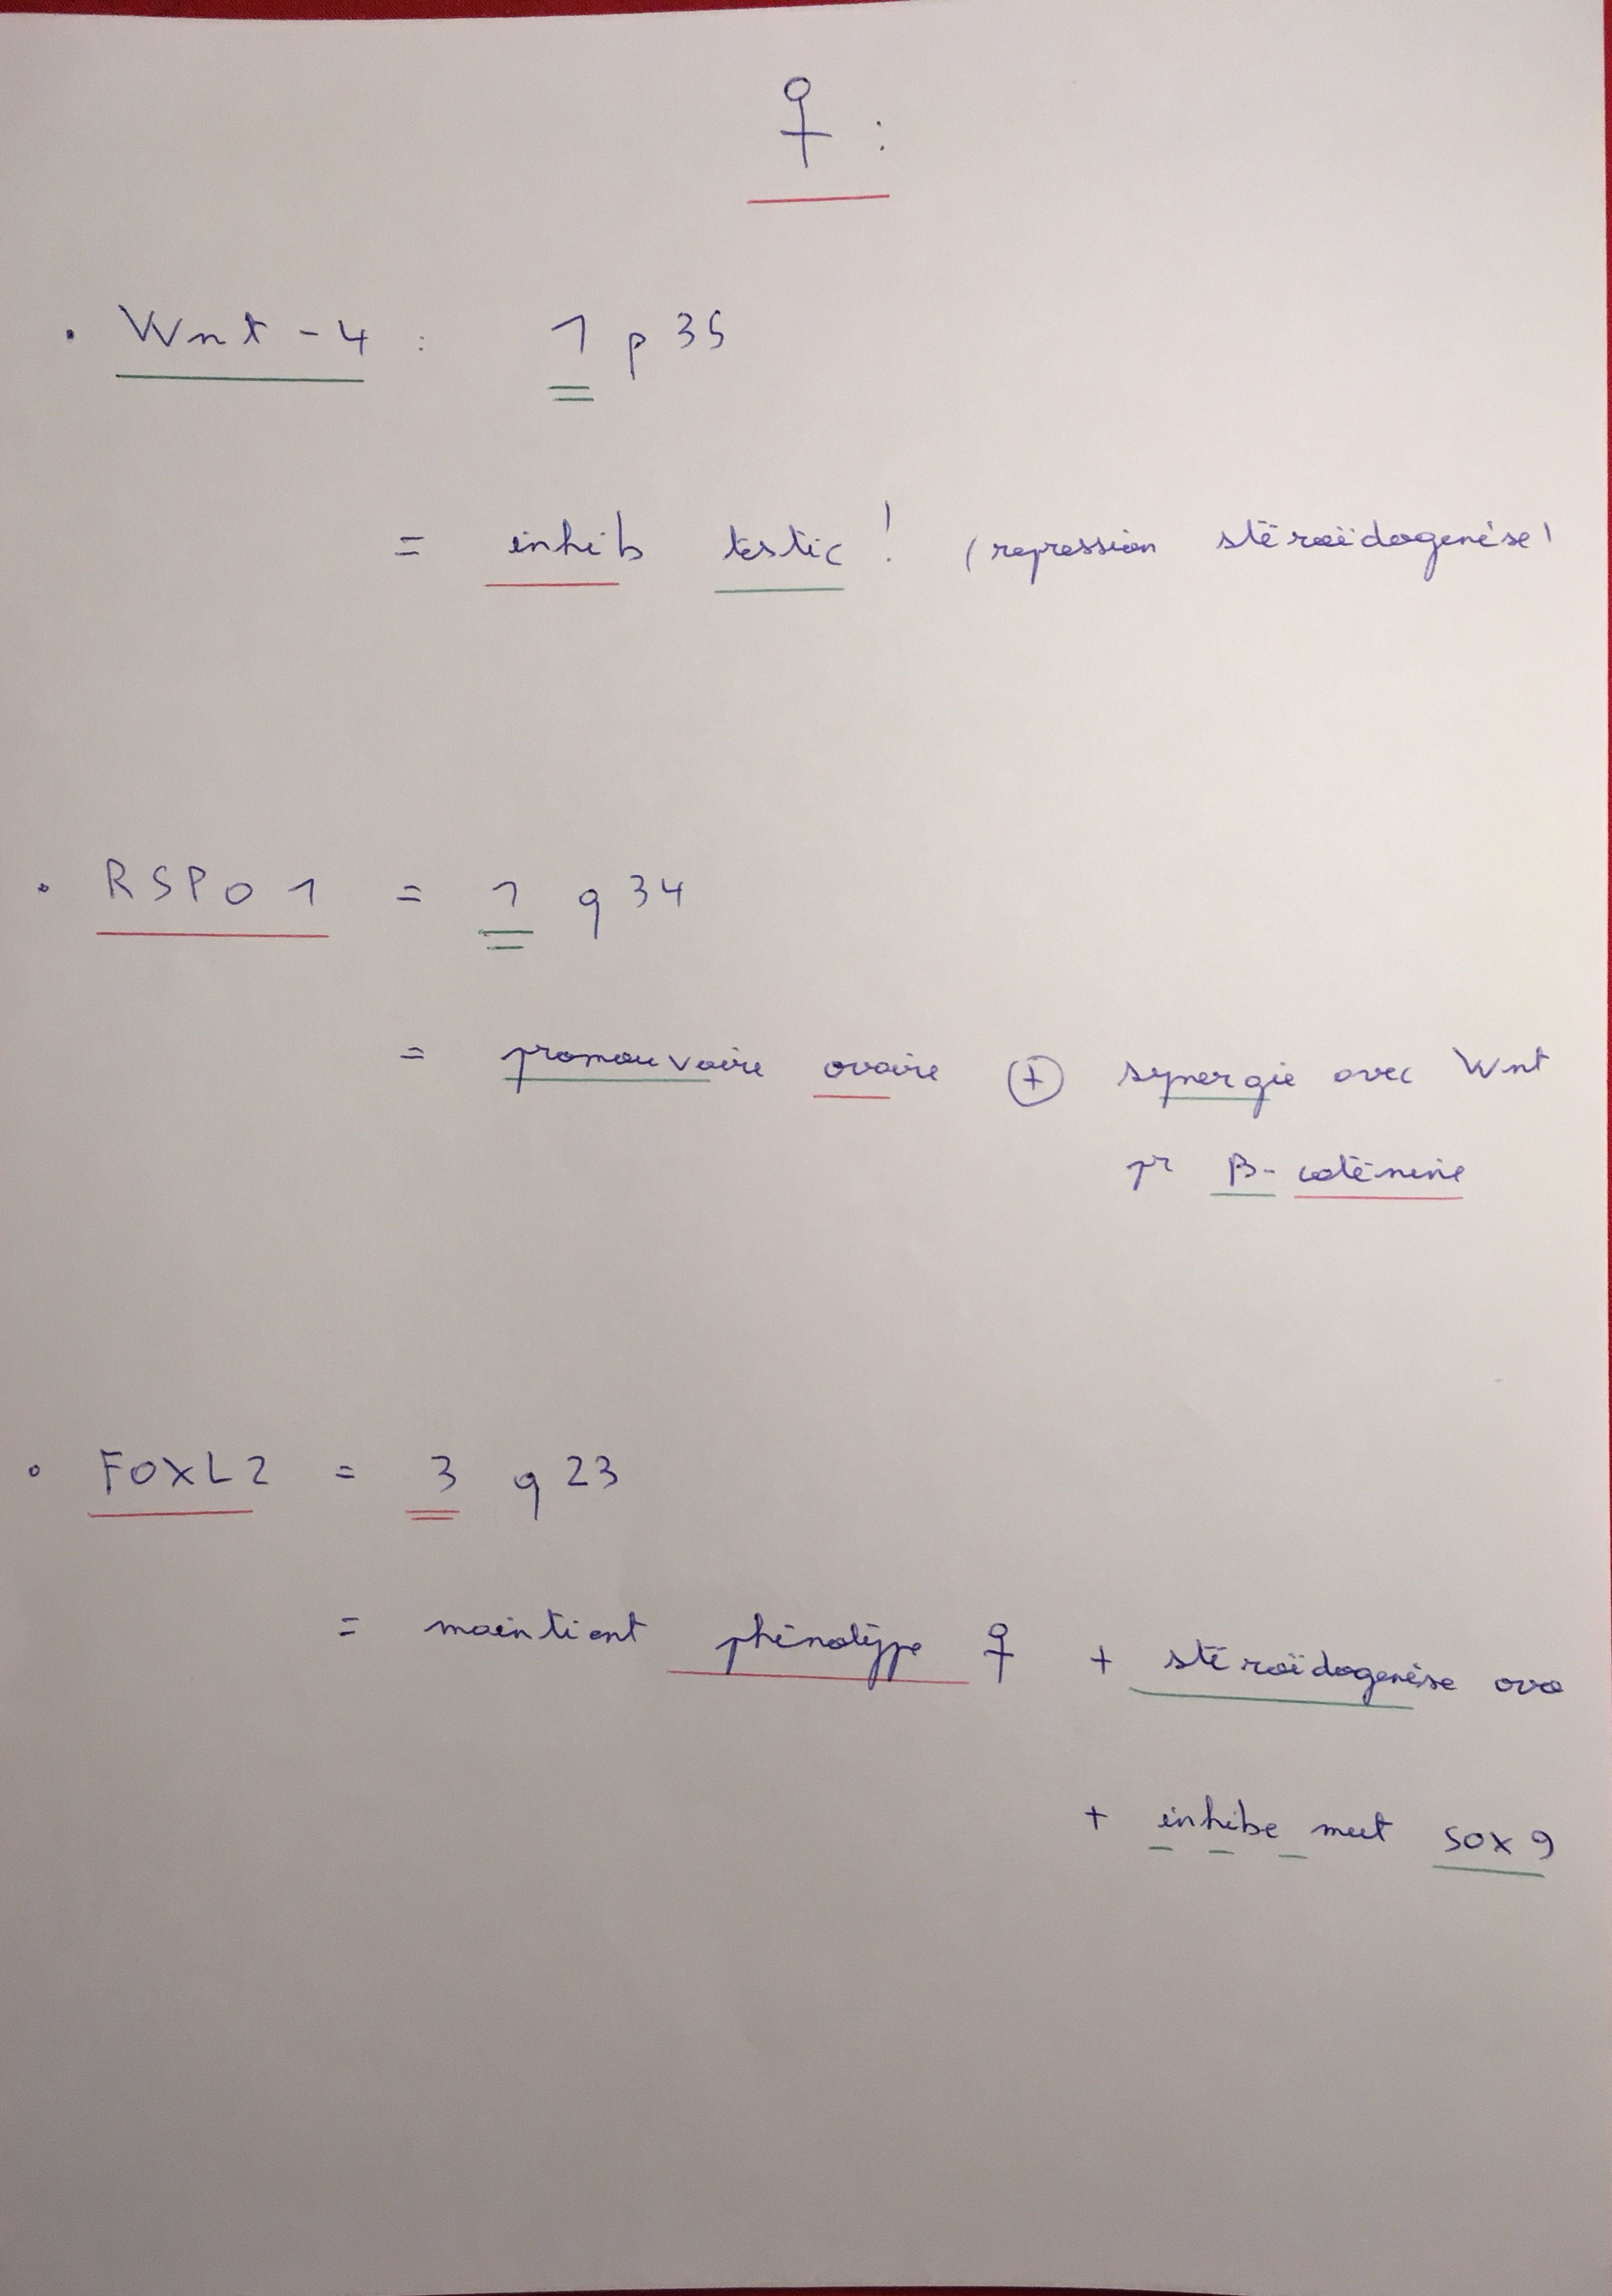 ♀ :
• Wnt - 4 : 1 p 35
= inhib testic ! (repression stéroïdogenèse)
• RSPO 1 = 1 q 34
= promouvoire ovaire ⊕ synergie avec Wnt
pr β- caténine
• FOXL2 = 3 q 23
= maintient phénotype ♀ + stéroïdogenèse ova
+ inhibe SOX 9